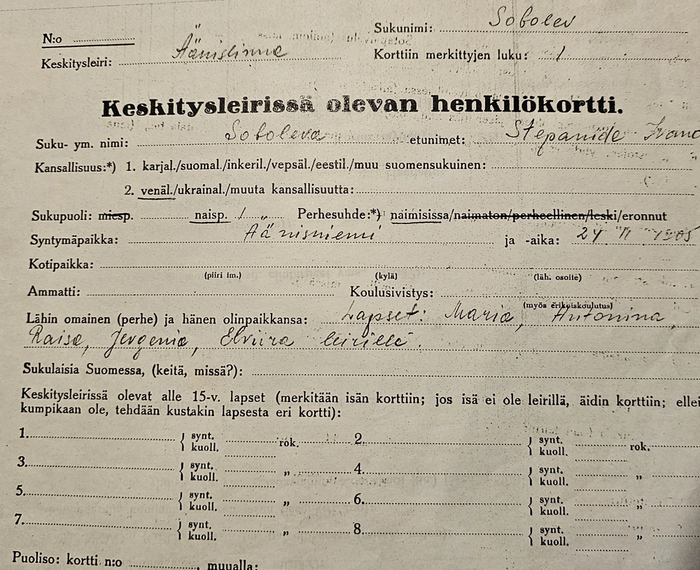 Sukunimi: Sobolev
N:o
Keskitysleiri: Äänislinna Korttiin merkittyjen luku: 1
Keskitysleirissä olevan henkilökortti.
Suku- ym. nimi: Soboleva etunimet: Stepanide
Kansallisuus:*) 1. karjal./suomal./inkeril./vepsäl./eestil./muu suomensukuinen:
2. venäl./ukrainal./muuta kansallisuutta:
Sukupuoli: miesp. naisp. 1 „ Perhesuhde:*) naimisissa/naimaton/perheellinen/leski/eronnut
Syntymäpaikka: Äänisniemi ja -aika: 24 1905
Kotipaikka:
(piiri im.) (kylä) (läh. osoite)
Ammatti: Koulusivistys:
(myös erikoiskoulutus)
Lähin omainen (perhe) ja hänen olinpaikkansa: Lapset: Maria, Antonina,
Raisa, Jevgenia, Elviira leirillä.
Sukulaisia Suomessa, (keitä, missä?):
Keskitysleirissä olevat alle 15-v. lapset (merkitään isän korttiin; jos isä ei ole leirillä, äidin korttiin; ellei
kumpikaan ole, tehdään kustakin lapsesta eri kortti):
1. synt. rok. 2. synt. rok.
kuoll. kuoll.
3. synt. „ 4. synt. „
kuoll. kuoll.
5. synt. „ 6. synt. „
kuoll. kuoll.
7. synt. „ 8. synt. „
kuoll. kuoll.
Puoliso: kortti n:o , muualla: